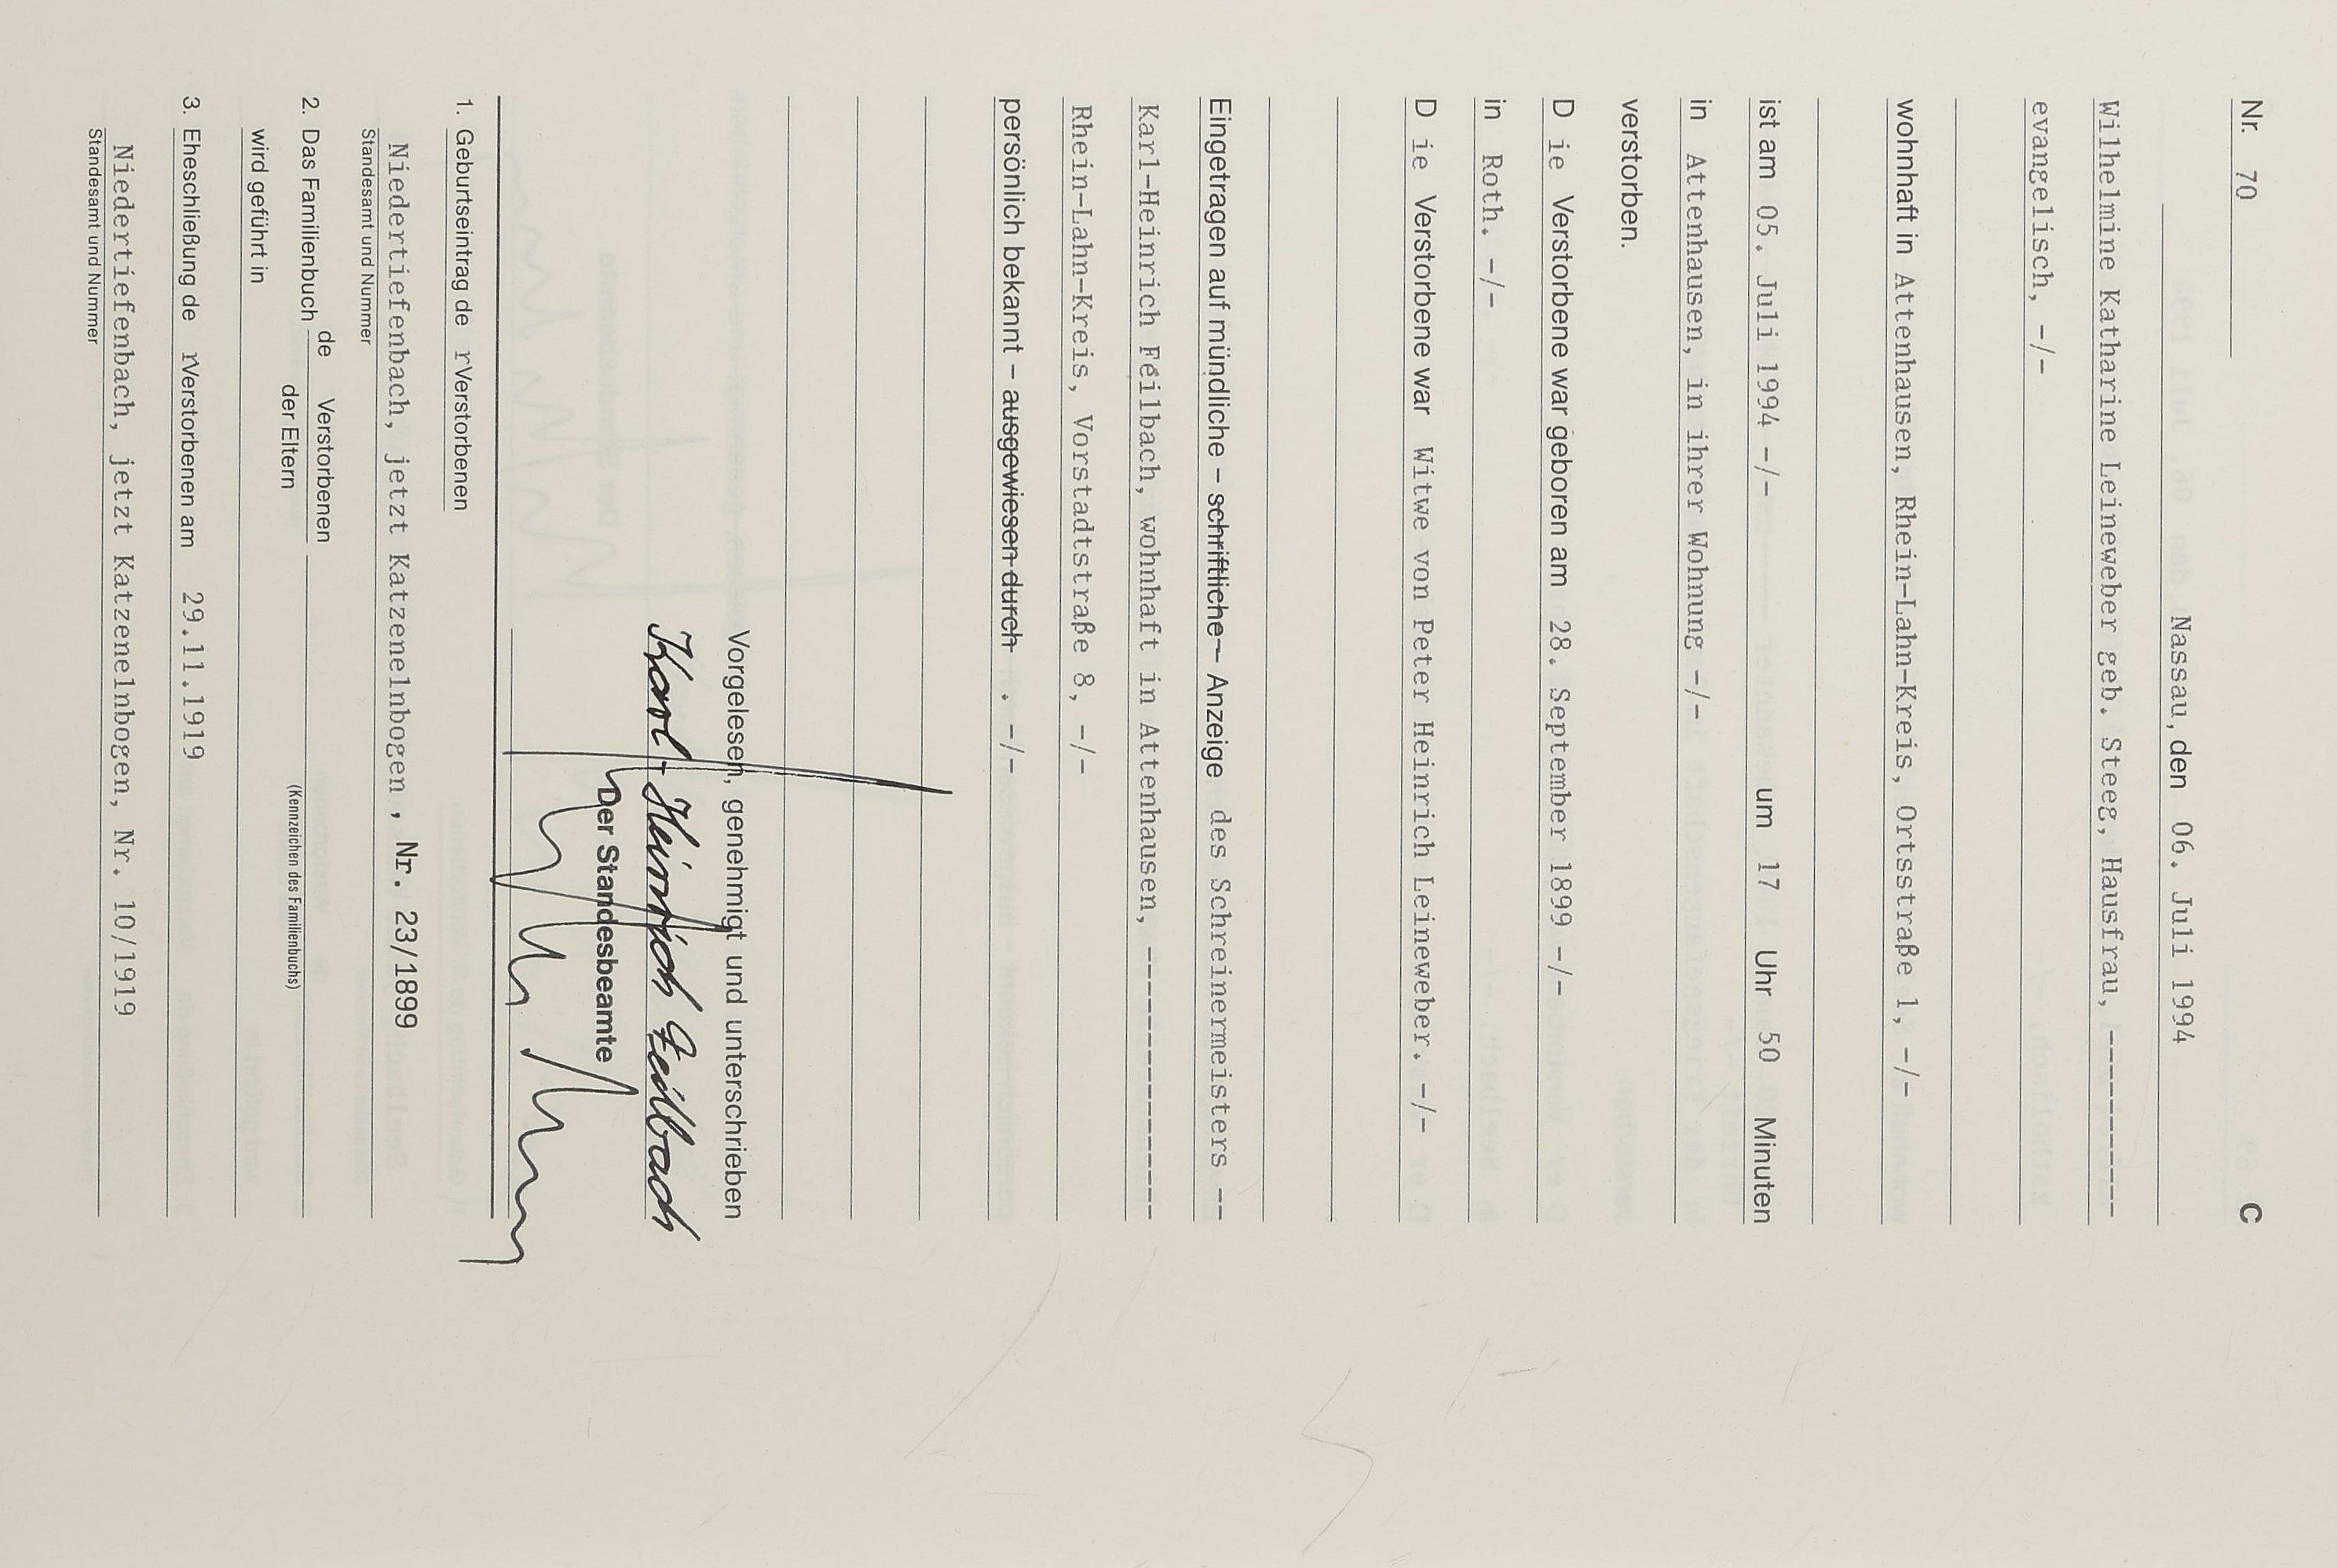 Nr. 70 C
Nassau, den 06. Juli 1994
Wilhelmine Katharine Leineweber geb. Steeg, Hausfrau, ----------
evangelisch, -/-
wohnhaft in Attenhausen, Rhein-Lahn-Kreis, Ortsstraße 1, -/-
ist am 05. Juli 1994 -/- um 17 Uhr 50 Minuten
in Attenhausen, in ihrer Wohnung -/-
verstorben.
D ie Verstorbene war geboren am 28. September 1899 -/-
in Roth. -/-
D ie Verstorbene war Witwe von Peter Heinrich Leineweber. -/-
Eingetragen auf mündliche – schriftliche – Anzeige des Schreinermeisters --
Karl-Heinrich Feilbach, wohnhaft in Attenhausen, ---------------
Rhein-Lahn-Kreis, Vorstadtstraße 8, -/-
persönlich bekannt – ausgewiesen durch . -/-
Vorgelesen, genehmigt und unterschrieben
Karl-Heinrich Feilbach
Der Standesbeamte
1. Geburtseintrag de r Verstorbenen
Niedertiefenbach, jetzt Katzenelnbogen , Nr. 23/1899
Standesamt und Nummer
2. Das Familienbuch de Verstorbenen
der Eltern
(Kennzeichen des Familienbuchs)
wird geführt in
3. Eheschließung de r Verstorbenen am 29.11.1919
Niedertiefenbach, jetzt Katzenelnbogen, Nr. 10/1919
Standesamt und Nummer